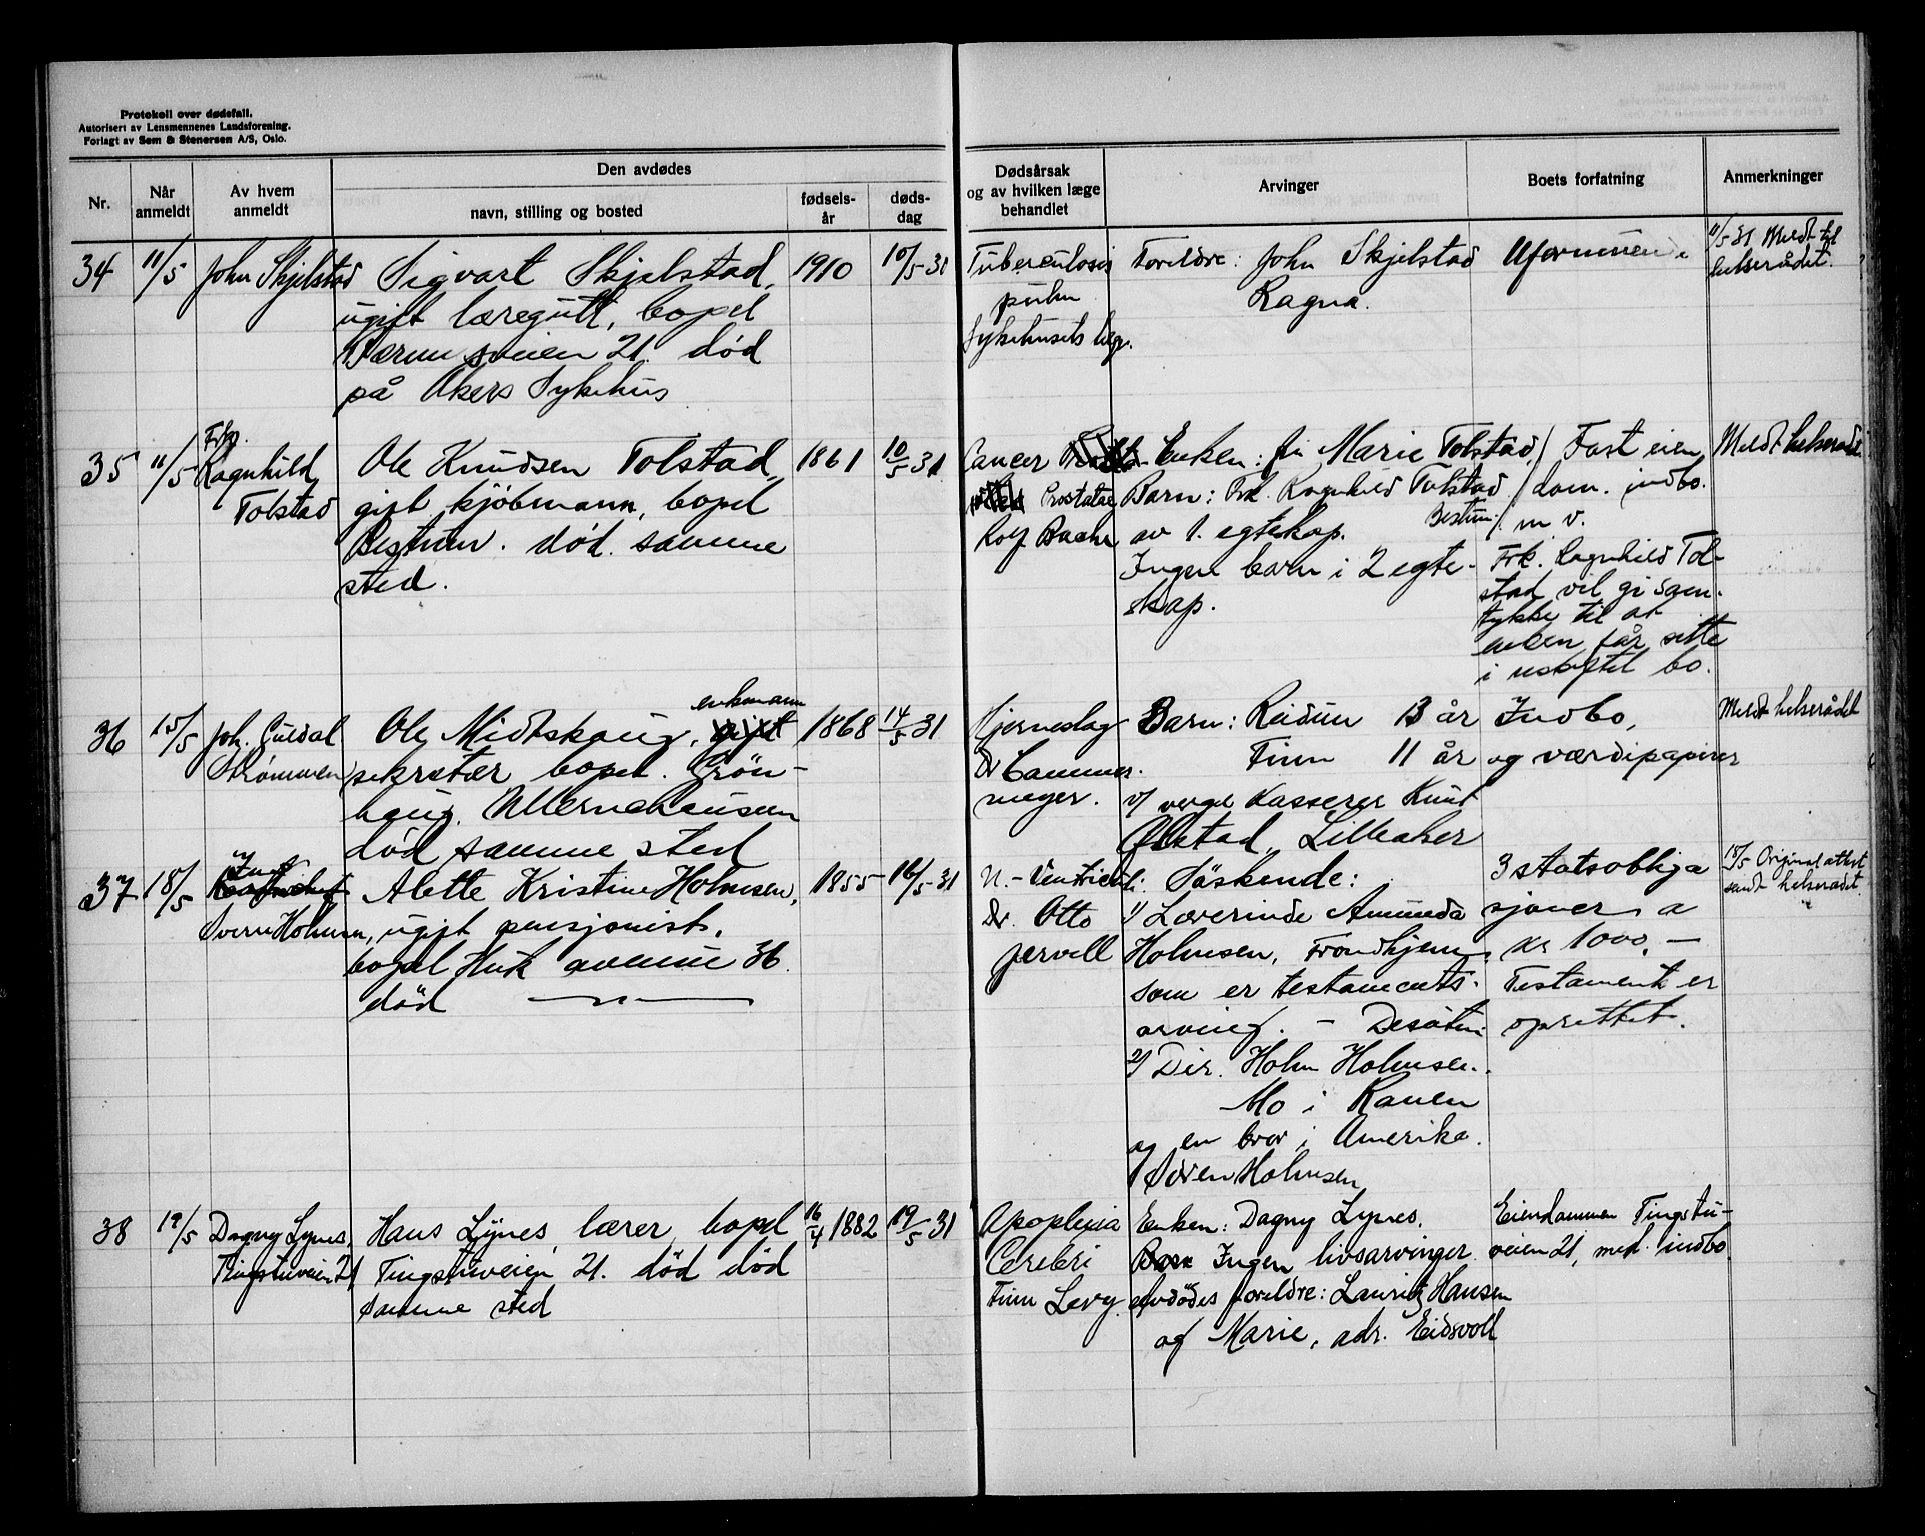 Protokoll over dødsfall.
Autorisert av Lensmennenes Landsforening.
Forlagt av Sem & Stenersen A/S, Oslo.
Nr.
Når
anmeldt
Av hvem
anmeldt
Den avdødes
navn, stilling og bosted
fødsels-
år
døds-
dag
Dødsårsak
og av hvilken læge
behandlet
Arvinger
Boets forfatning
Anmerkninger
34
11/5
John Skjelstad
Sigvart Skjelstad,
ugift læregutt, bopel
Bærumsveien 21. død
på Akers Sykehus
1910
10/5-31
Tuberculosis
pulm
Sykehusets læge.
Foreldre: John Skjelstad
Ragna.
Uformuende
11/5-31 Meldt til
helserådet.
35
11/5
Frk.
Ragnhild
Tolstad
Ole Knudsen Tolstad,
gift kjöbmann, bopel
Bestum. død samme
sted.
1861
10/5-31
Cancer
Prostatae
Rolf Bache
Enken: fru Marie Tolstad
Barn: Frk. Ragnhild Tolstad
Bestum
av 1. egteskap.
Ingen barn i 2 egte-
skap.
Fast eien
dom. indbo.
m v.
Frk. Ragnhild Tol-
stad vil gi sam-
tykke til at
enken får sitte
i uskiftet bo.
Meldt helserådet
36
15/5
Joh. Guldal
Strømmen
enkemann
Ole Midtskaug, gift
sekretær bopel. Grön-
haug. Ullernchausseen
død samme sted
1868
14/5-31
Hjerneslag
Dr Cammer-
meyer.
Barn: Reidun 13 år
Finn 11 år
v/ verge Kasserer Knut
Ølstad, Lilleaker
Indbo,
og værdipapirer
Meldt helserådet
37
18/5
Ing
Svenn Holmsen
Alette Kristine Holmsen,
ugift pensjonist.
bopel Huk avenue 36.
död —"—
1855
16/5-31
U.-Ventriculi.
Dr. Otto
Jervell
Söskende:
1/ Lærerinde Amunda
Holmsen, Trondhjem,
som er testaments-
arving. -
2/ Dir. Holm Holmsen.
Mo i Ranen
og en bror i Amerika.
Søren Holmsen
3 statsobliga
sjoner a
kr 1000.-
Testament er
oprettet.
18/5 Original attest
sendt helserådet.
38
19/5
Dagny Lynes,
Tingstuveien 21
Hans Lynes, lærer, bopel
Tingstuveien 21. död död
samme sted
16/4 1882
19/5 31
Apoplexia
Cerebri
Finn Levy
Enken: Dagny Lynes.
Barn Ingen livsarvinger
avdødes foreldre: Lauritz Hansen
og Marie, adr. Eidsvoll
Eiendommen Tingstu-
veien 21, med indbo.